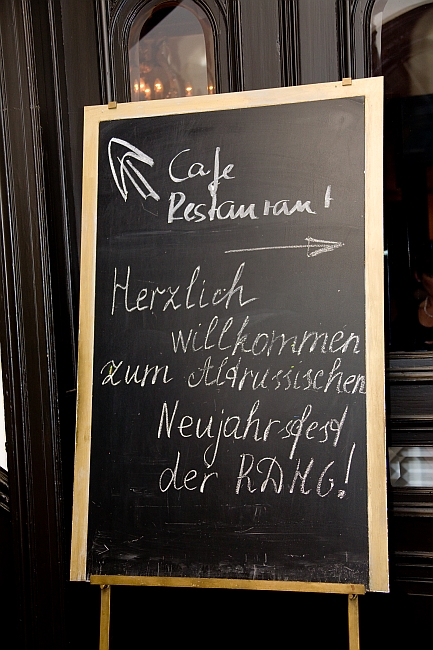 Cafe
Restaurant
Herzlich
willkommen
zum Altrussischen
Neujahrsfest
der RDHG!